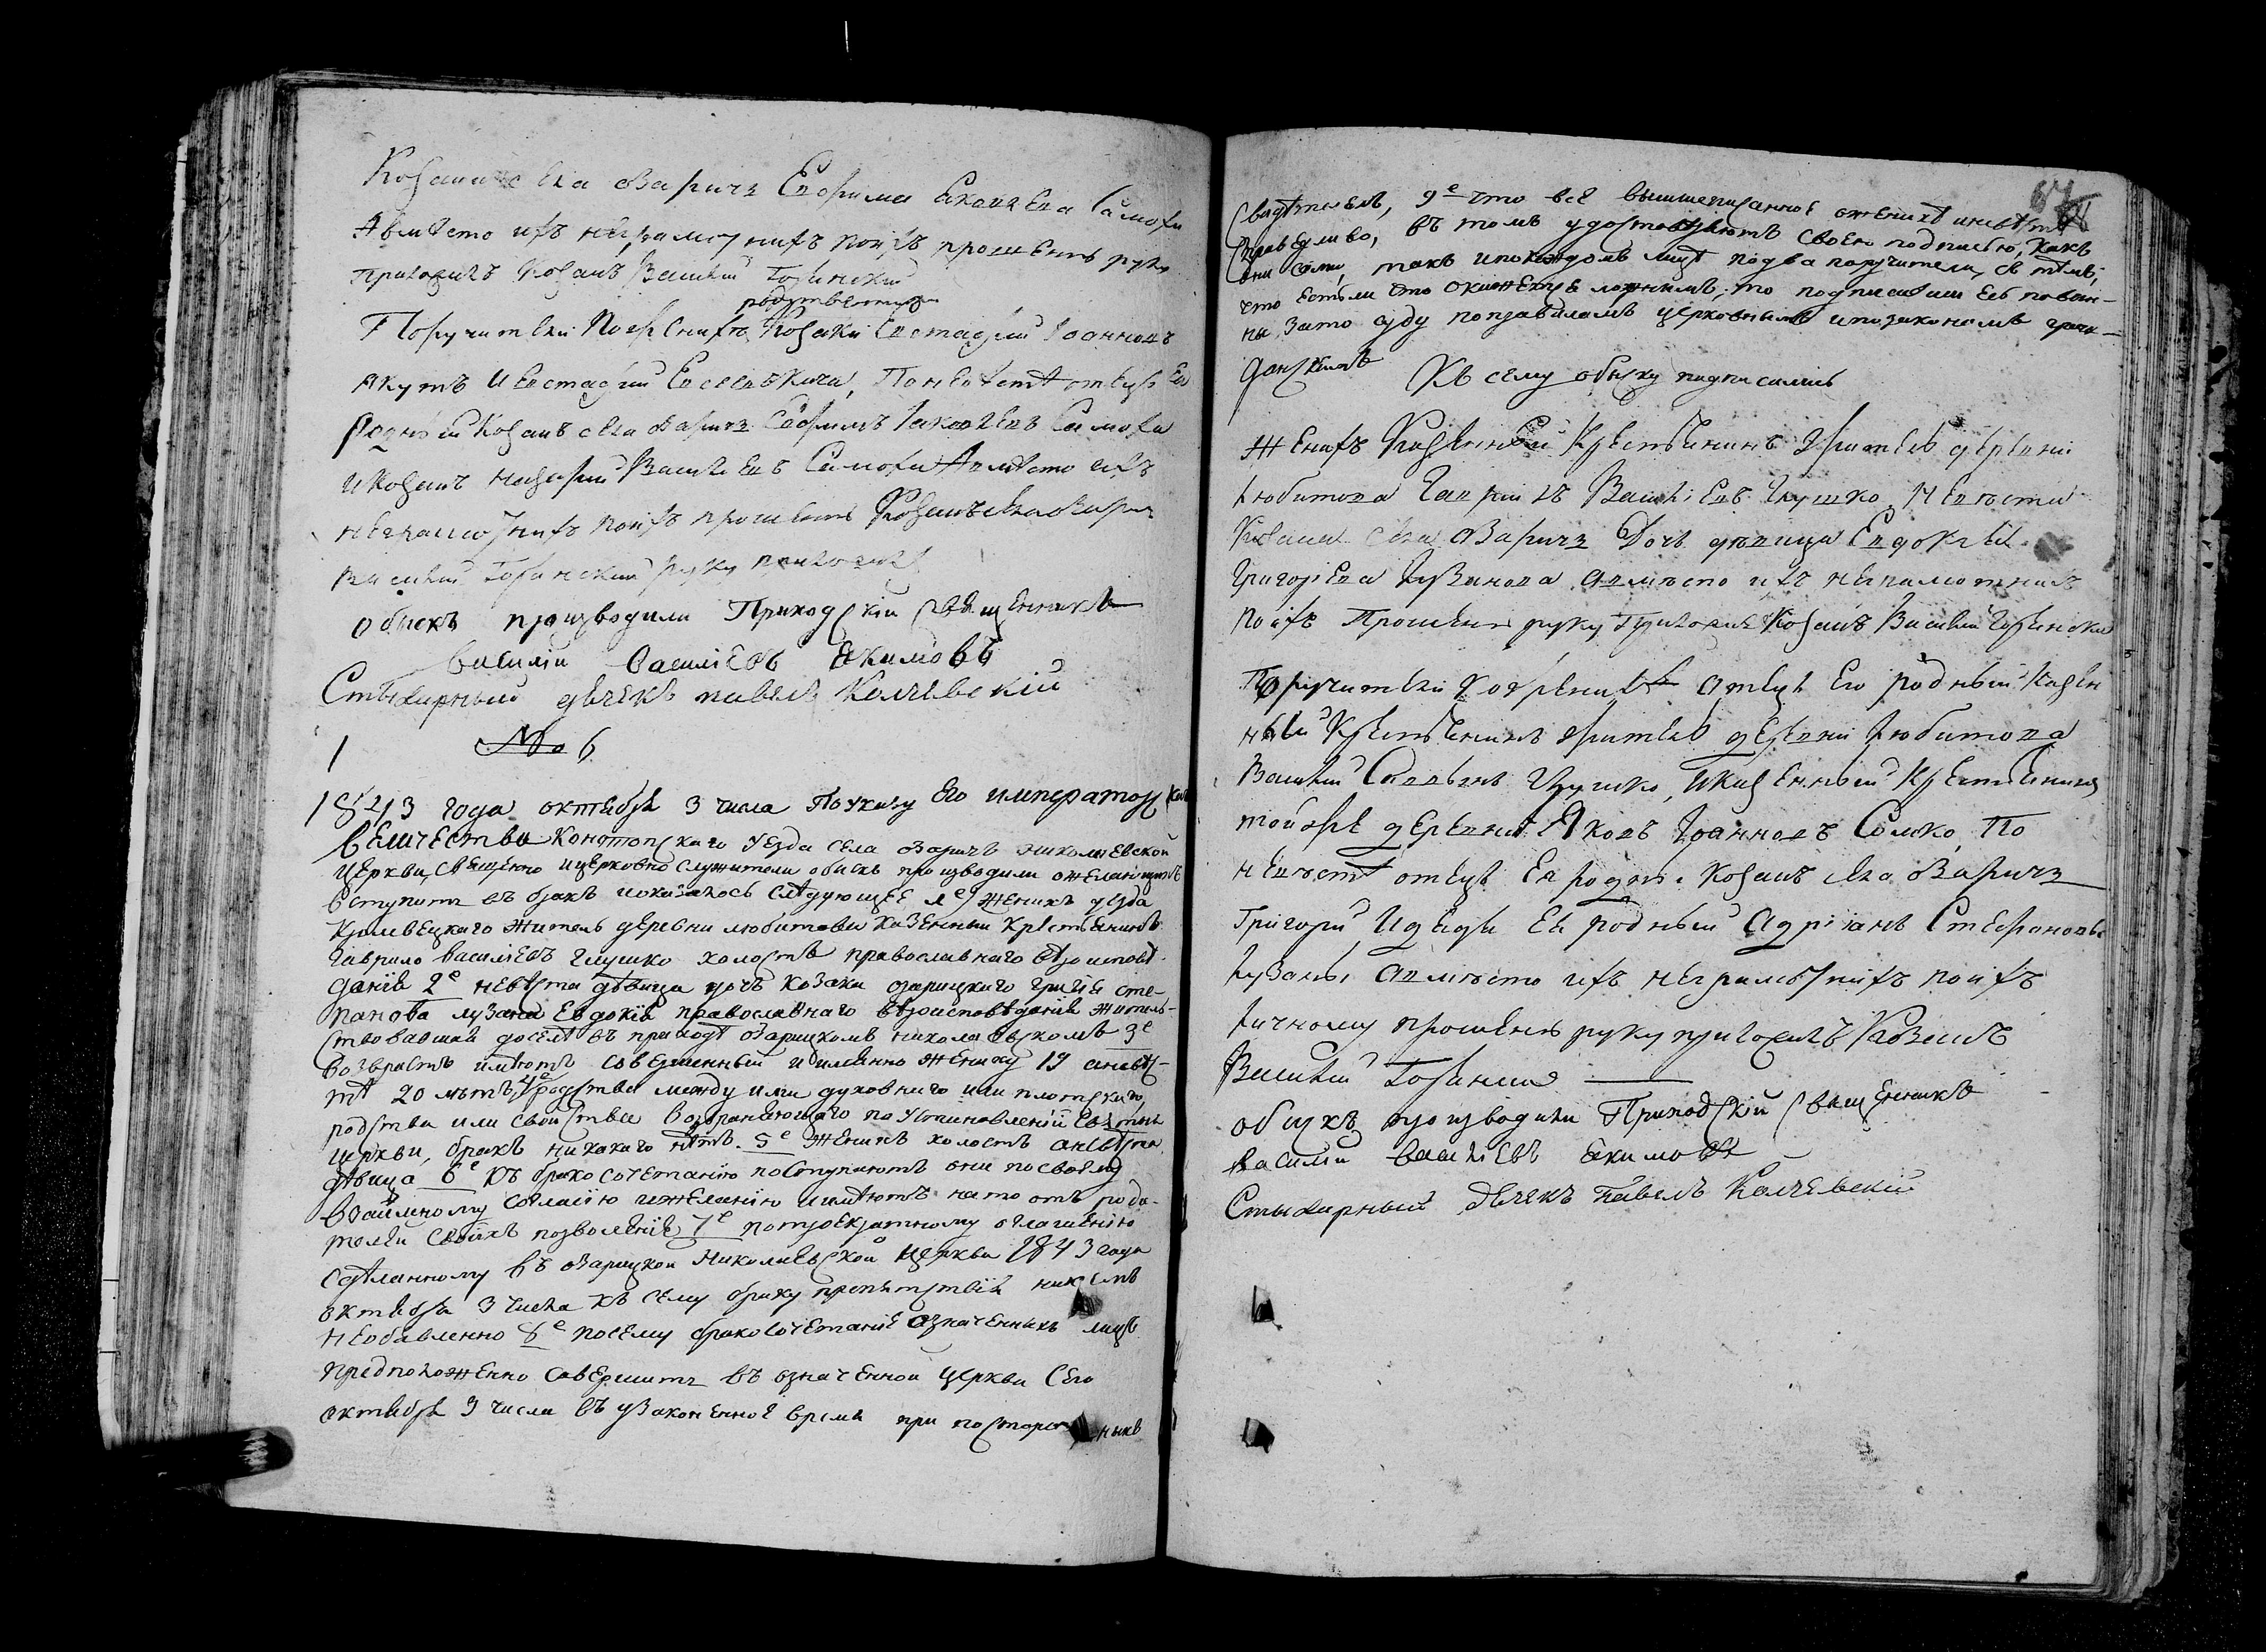 Козака села Озарич Ефрима Яковлева Самохи
А вместо их неграмотних по их прошению руку
приложил козак Василий Горинский
родственники
Поручители По жениху Козаки Евстафий Іоаннов
Якут и Евстафий Евсеев Кича, По невесте отец Ея
Родной Козак села Озарич Ефрим Іаковлев Самоха
и Козак Назарий Васильев Самоха А вместо их
неграмотних по их прошению Козак села Озарич
Василий Горинский руку приложил
Обыск производили Приходский Священник
Василий Васильев Екимовъ
Стихарный дьячекъ павелъ Колчевский
1 № 6
1843 года октября 3 числа По указу Его императорскаго
Величества Конотопскаго уезда села Озаричъ николаевской
церкви, священно и церковно служители обыскъ производили о желающихъ
вступить въ бракъ и оказалось следующее 1е Женихъ уезда
Кролевецкаго житель деревни любитова казенный крестьянинъ
Гаврило Васильевъ Глушко холостъ православнаго вероисповѣ
данія 2е невѣста дѣвица дочь козака озарицкаго григорія сте-
панова лузана Евдокія православнаго вѣроисповѣданія житель-
ствовавшая доселѣ въ приходѣ озарицкомъ николаевскомъ 3е
Возврастъ имѣютъ совершенный и именно жениху 19 а невѣс-
тѣ 20 лѣтъ, 4е родства между ими духовнаго или плотскаго
родства или свойства возбраняющаго по установленій Святыя
церкви, бракъ никакого нѣтъ. 5е Женихъ холостъ а невѣста
дѣвица 6е къ бракосочетанію поступаютъ они по своему
взаимному согласію и желанію и имѣютъ на то отъ роди-
телей своихъ позволеніе 7е по троекратному оглашенію
сдѣланному въ озарицкой Николаевской церкви 1843 года
октября 3 числа къ сему браку препятствія никемъ
необявленно 8е посему бракосочетаніе означенныхъ лицъ
предположенно совершить въ означенной церкви сего
октября 3 числа въ узаконенное время при посторонныхъ
67
Свидѣтеляхъ, 9е что всё вышеписанное о женихѣ и невѣстѣ
справедливо, въ томъ удостовѣряютъ своею подписью, какъ
они сами, такъ и по каждомъ лицѣ по два поручителя, съ тѣмъ,
что естьли что окажется ложнымъ, то подписавшиеся повин-
ны за то суду по правиламъ церковнымъ и по законамъ граж-
данскимъ
Къ сему обыску подписались
Женихъ Казенный Крестьянинъ Житель деревни
Любитова Гавриилъ Васильевъ Глушко, Невеста
Козака села Озаричъ Дочь девица Евдокия
Григориева Лузанова а вместо их неграмотних
По ихъ Прошению руку Приложилъ Козакъ Василий Горински
Поручители по женихѣ Отецъ Его родный казен
ный Крестьянинъ житель деревни Любитова
Василий Глушко, и казенный Крестьянинъ
той же деревни Яковъ Іоанновъ Сомко, По
невѣстѣ отецъ Ея родной Козакъ села Озаричъ
Григорий и дядя Ея родный Адріанъ Стефановы
Лузаны а вместо ихъ неграмотнихъ по ихъ
личному прошению руку приложилъ Козакъ
Василий Горински
обыскъ производили Приходский священникъ
василий василиевъ Екимовъ
Стихарный Дячекъ Павелъ Колчевский